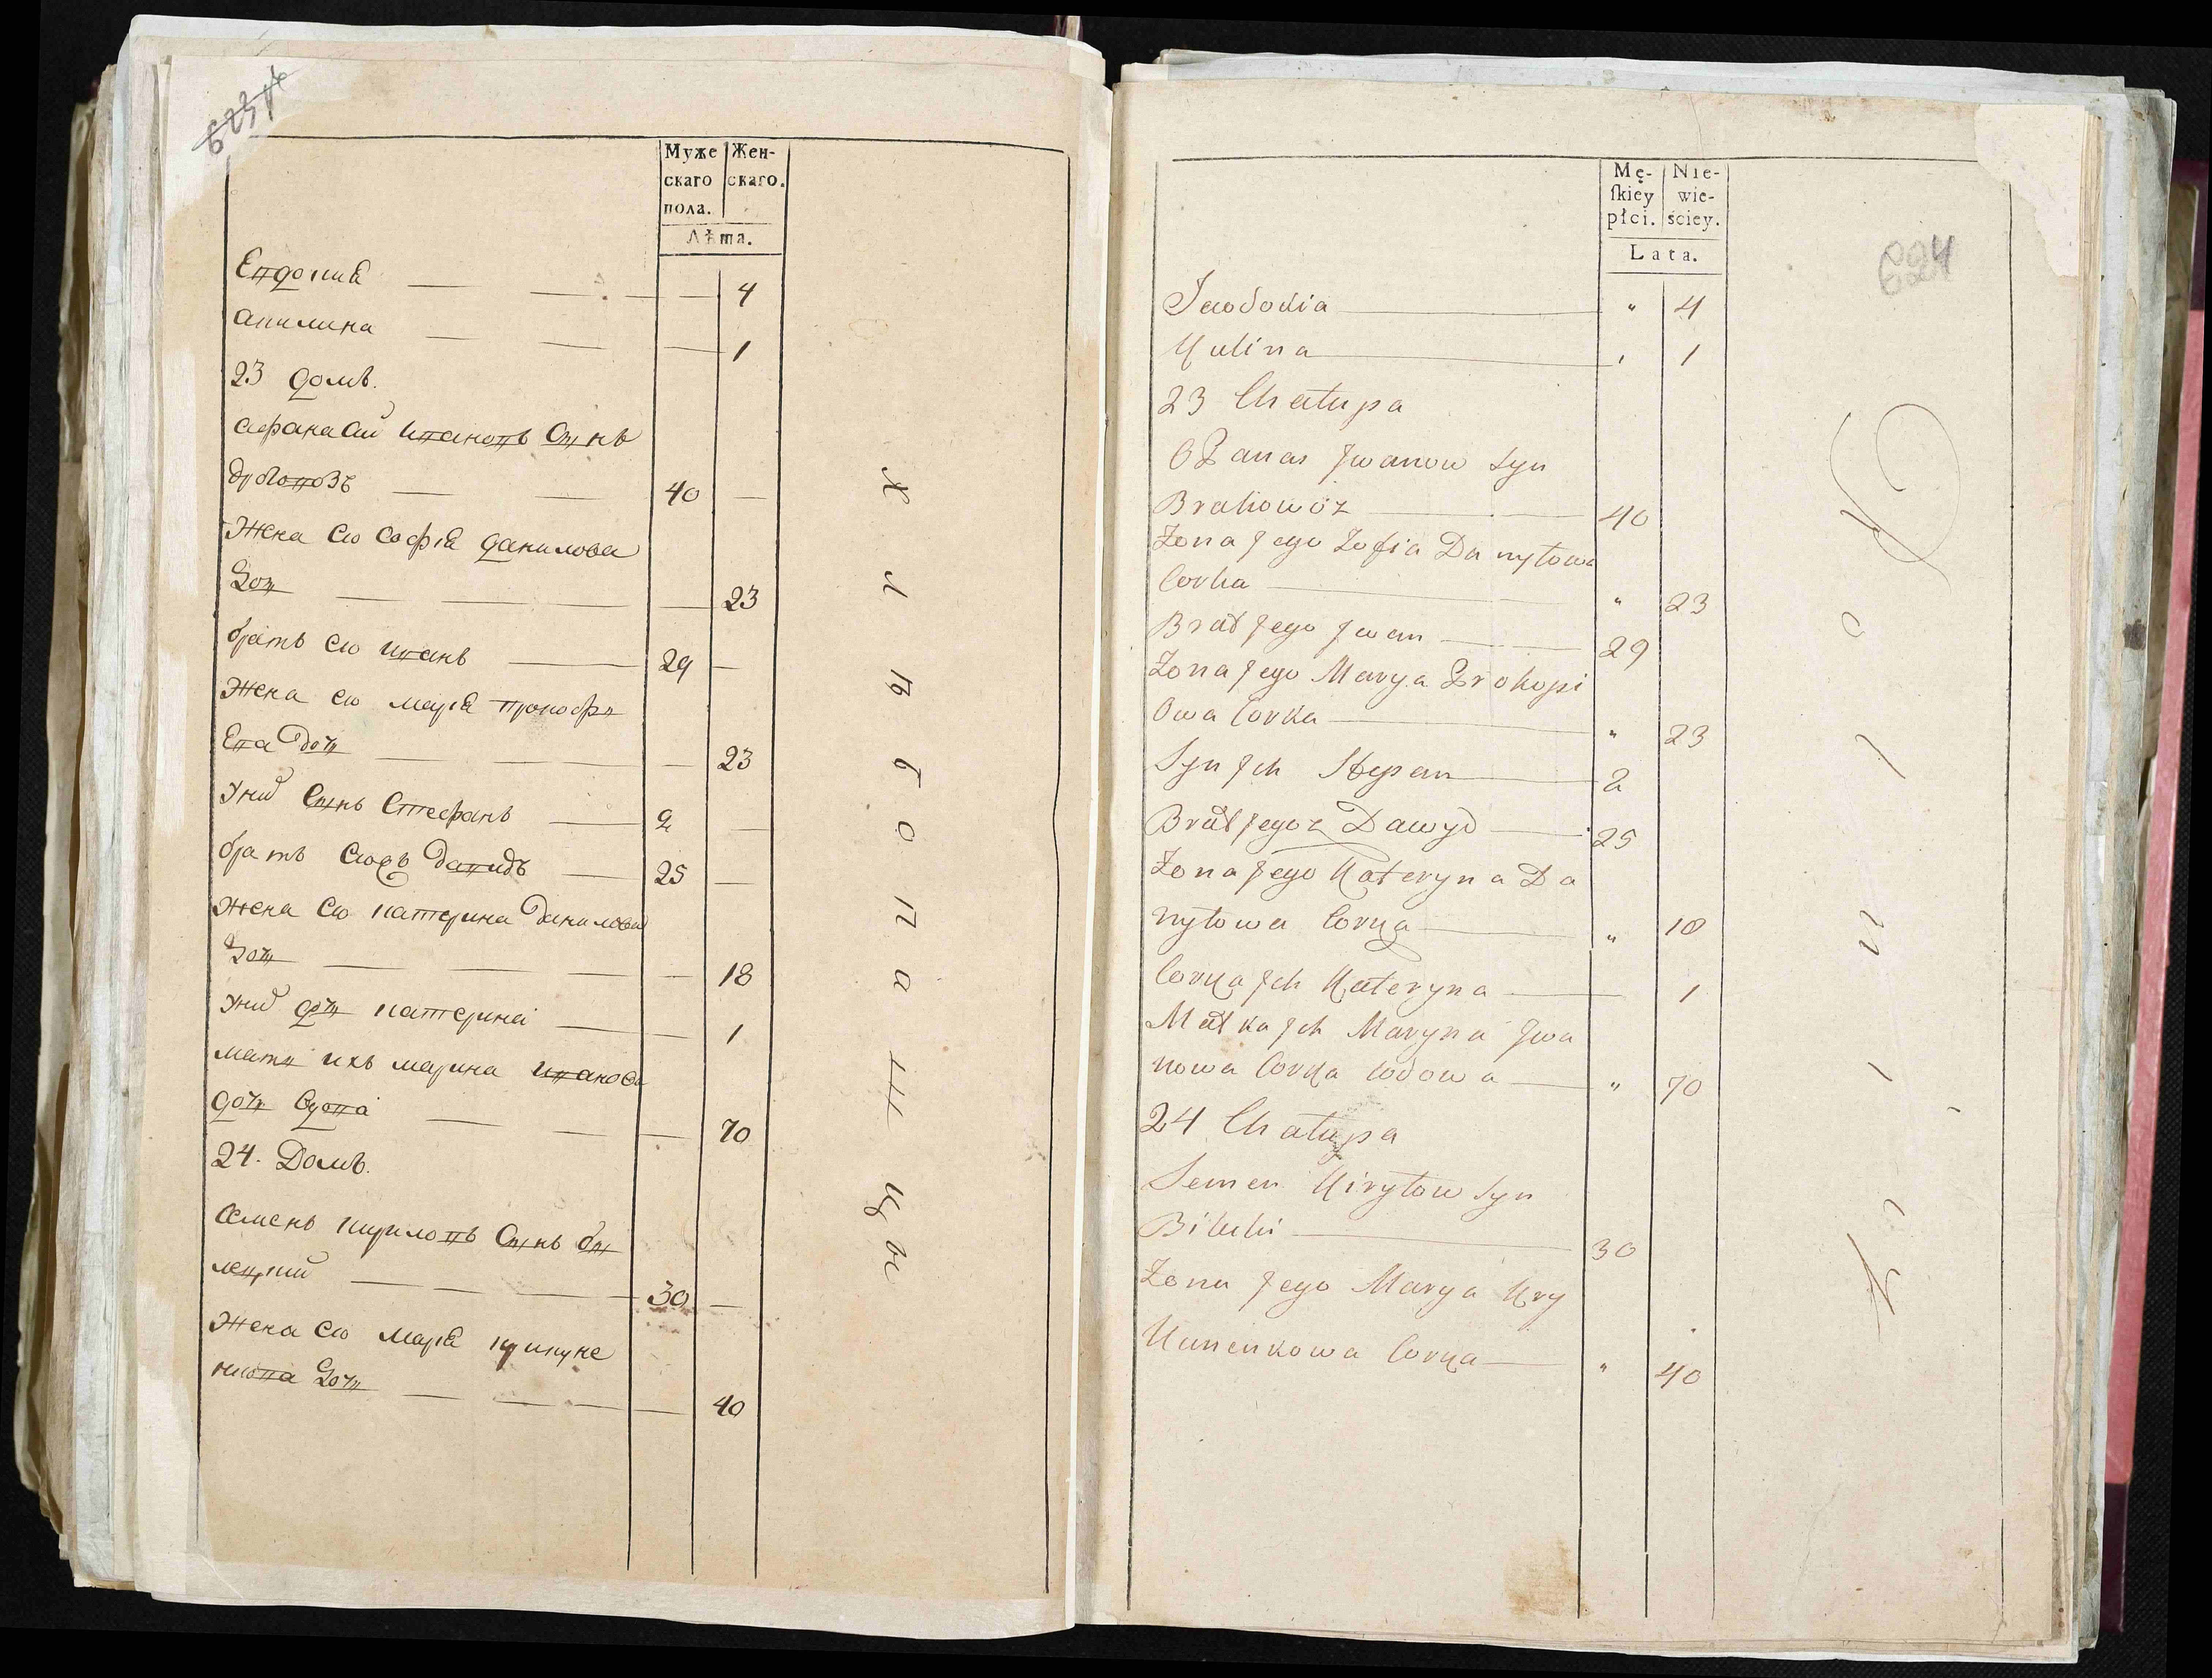 Муже
скаго
пола.
Жен-
скаго.
Лѣта.
Евдокиѣ 4
акилина 1
23 домъ.
афанасий ивановъ Сынъ
40
Жена его софиѣ данилова
Доч 23
братъ его иванъ 29
Жена его мариѣ прокофи
Ева Доч 23
Ихъ Сынъ Стефанъ 2
братъ давидъ 25
Жена его катерина данилова
Доч 18
доч катерина 1
мати ихъ марина иванова
доч вдова 70
24. Домъ.
Семенъ кириловъ Сынъ би
30
Жена его мариѣ крикуне
нкова Доч 40
х л ѣ б о п а ш ц ы
Mę-
skiéy
płci.
Nie-
wie-
ściey.
Lata.
604
Jewdokia " 4
Kulina " 1
23 Chałupa
Iwanow Syn
40
Zona Jego Zofia Daniłowa
Corka " 23
Brat Jego Jwan 29
Zona Jego Marya Prokopi
Owa Corka " 23
Syn Jch Stepan 2
Brat Jego 2 Dawyd 25
Zona Jego Kateryna Da
nyłowa Corka " 18
Corka Jch Kateryna 1
Matka Jch Maryna Jwa
nowa Corka wdowa " 70
24 Chałupa
Semen Kiryłow Syn
30
Zona Jego Marya Kry
Kunenkowa Corka " 40
R o l n i k i